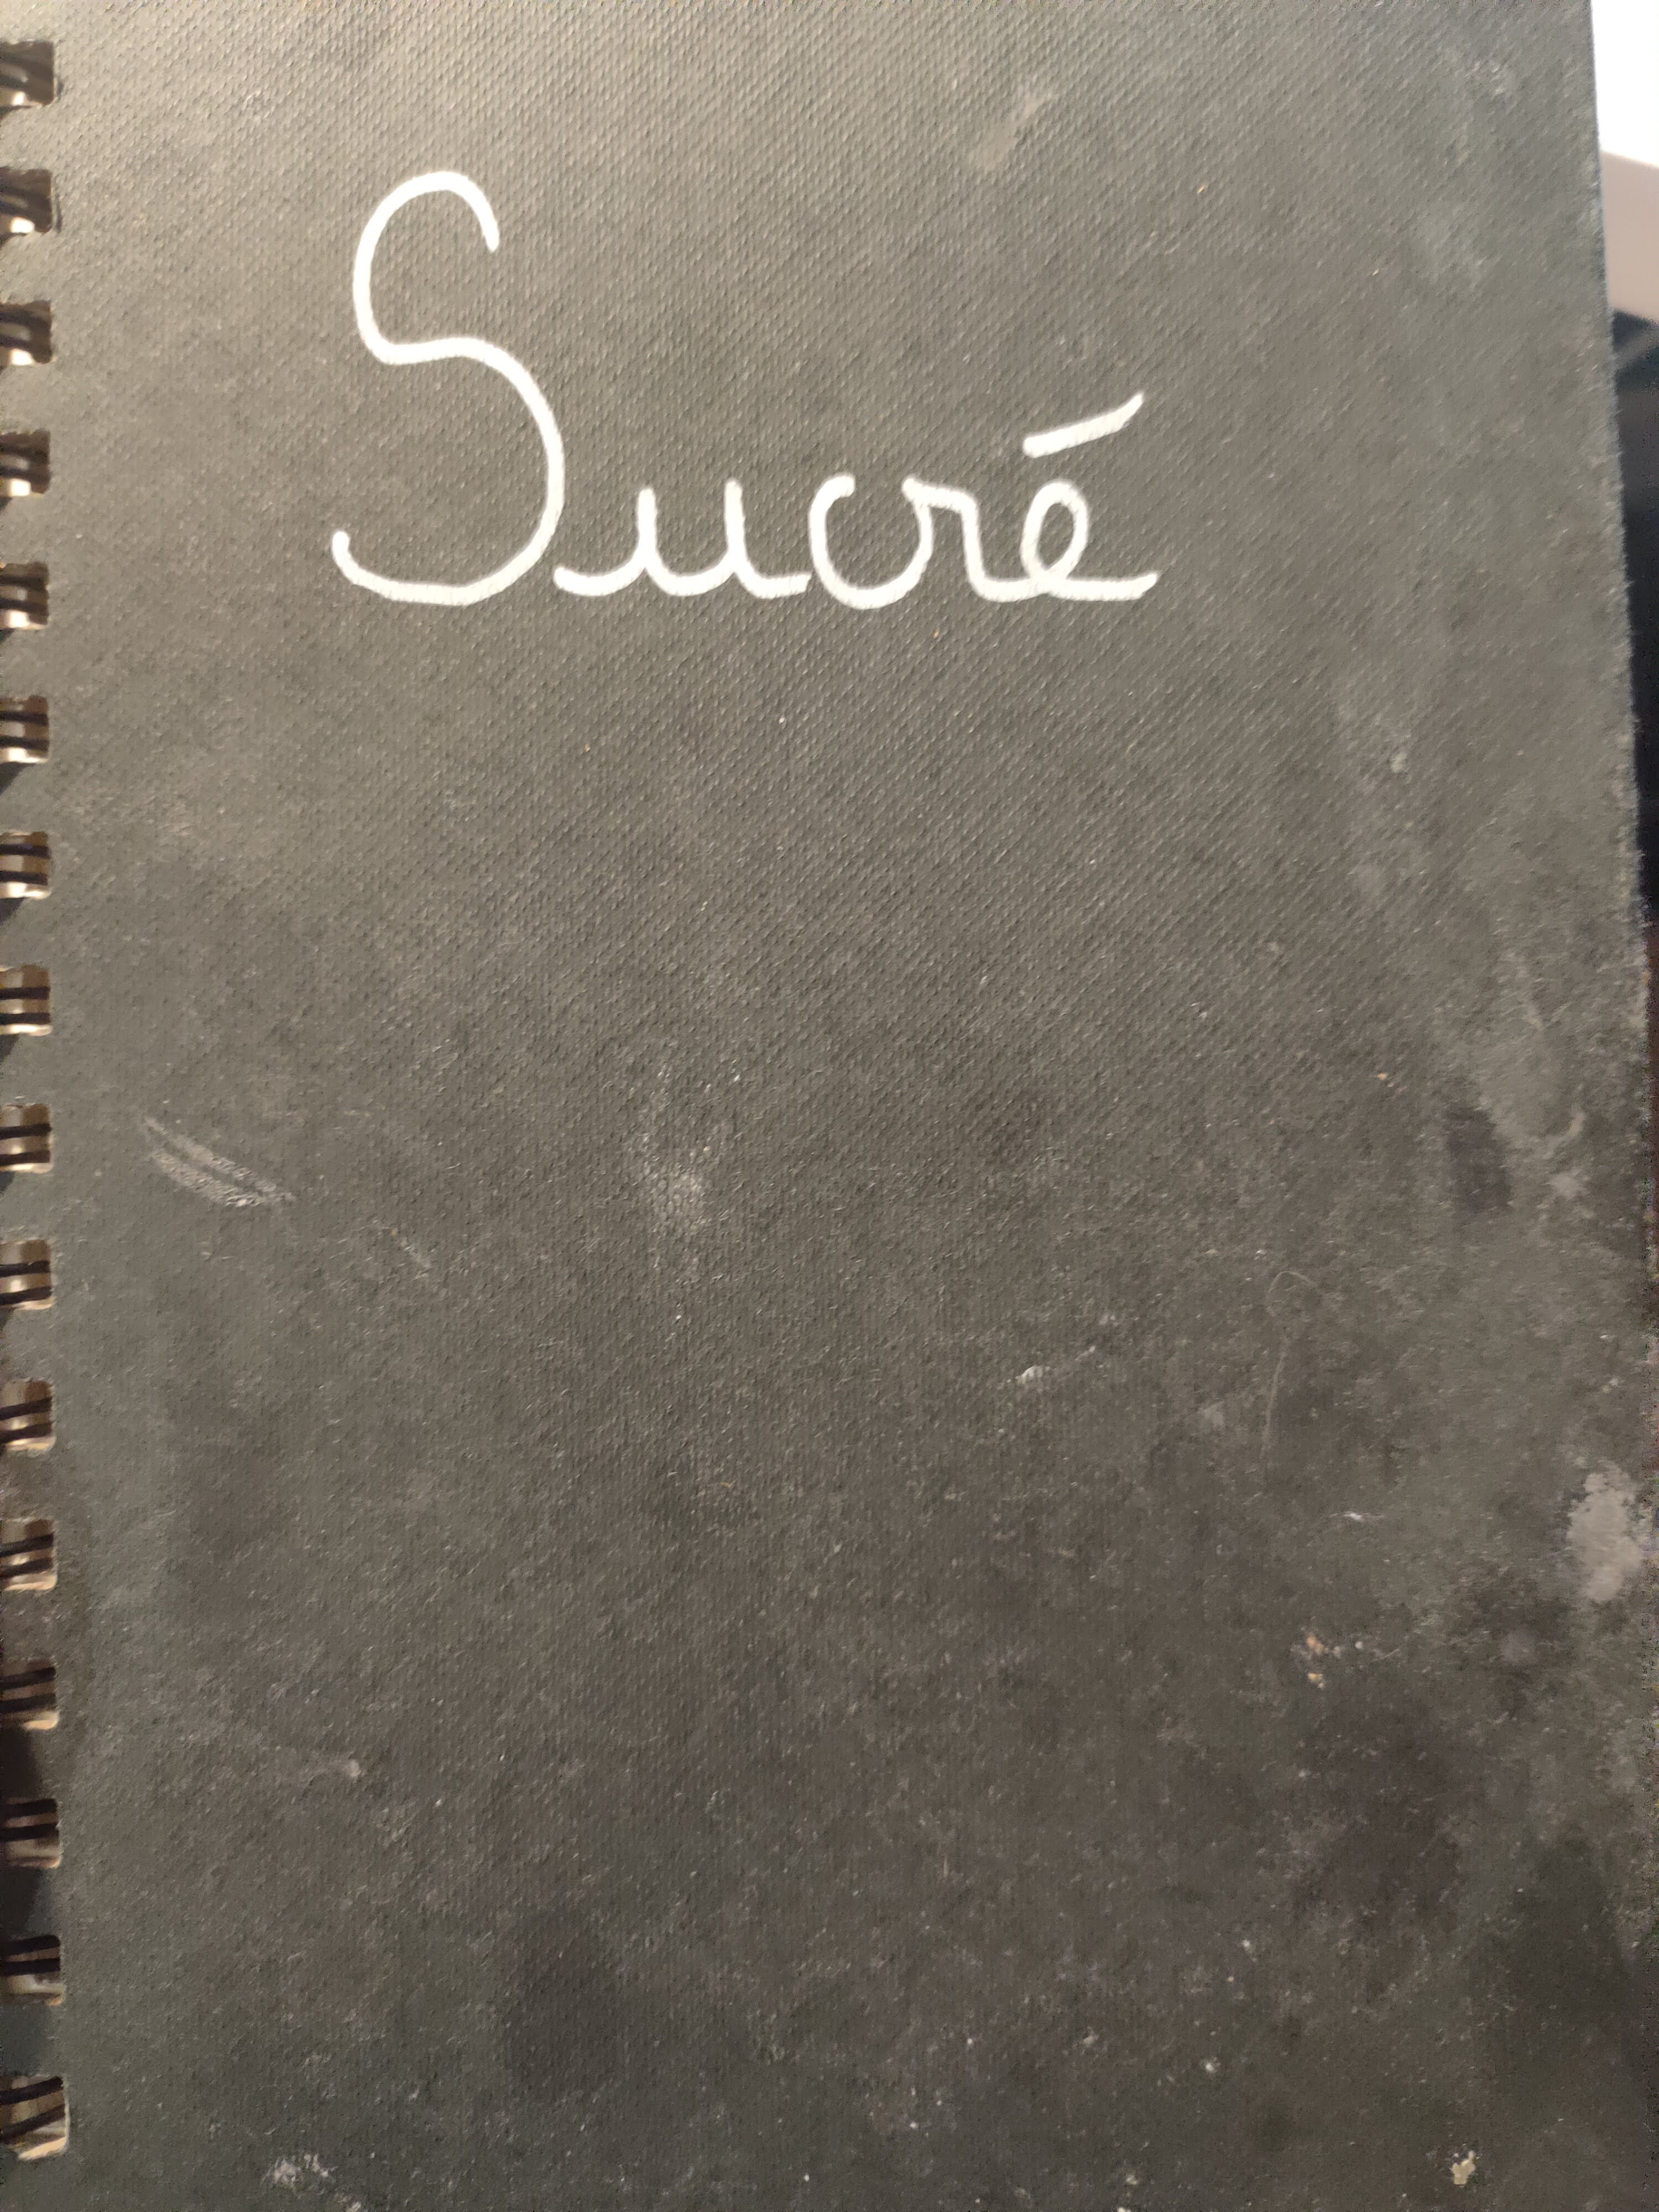 Sucré